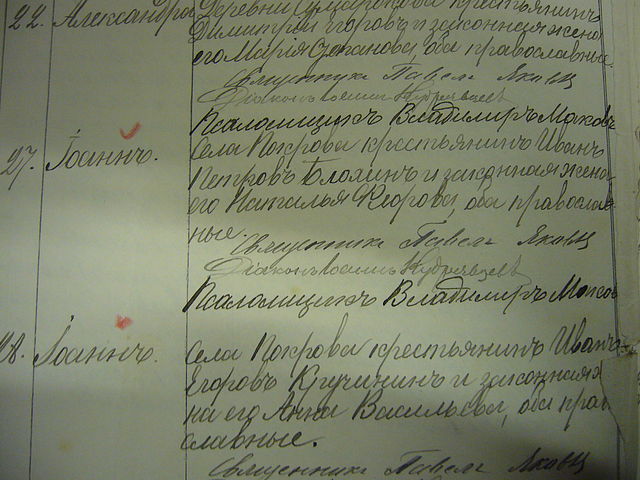 22. Александра Деревни крестьянинъ
Димитрій Егоровъ и законная жена
его Марія Степанова, оба православные.
Священникъ Павелъ
Діаконъ Іоаннъ Кудрявцевъ
Псаломщикъ Владиміръ
27. Іоаннъ. Села Покрова крестьянинъ Иванъ
Петровъ Блохинъ и законная жена
его Наталья Егорова, оба православ
ные.
Священникъ Павелъ
Діаконъ Іоаннъ Кудрявцевъ
Псаломщикъ Владиміръ
28. Іоаннъ. Села Покрова крестьянинъ Иванъ
Егоровъ Кручининъ и законная
на его Анна Васильева, оба пра
славные.
Священникъ Павелъ